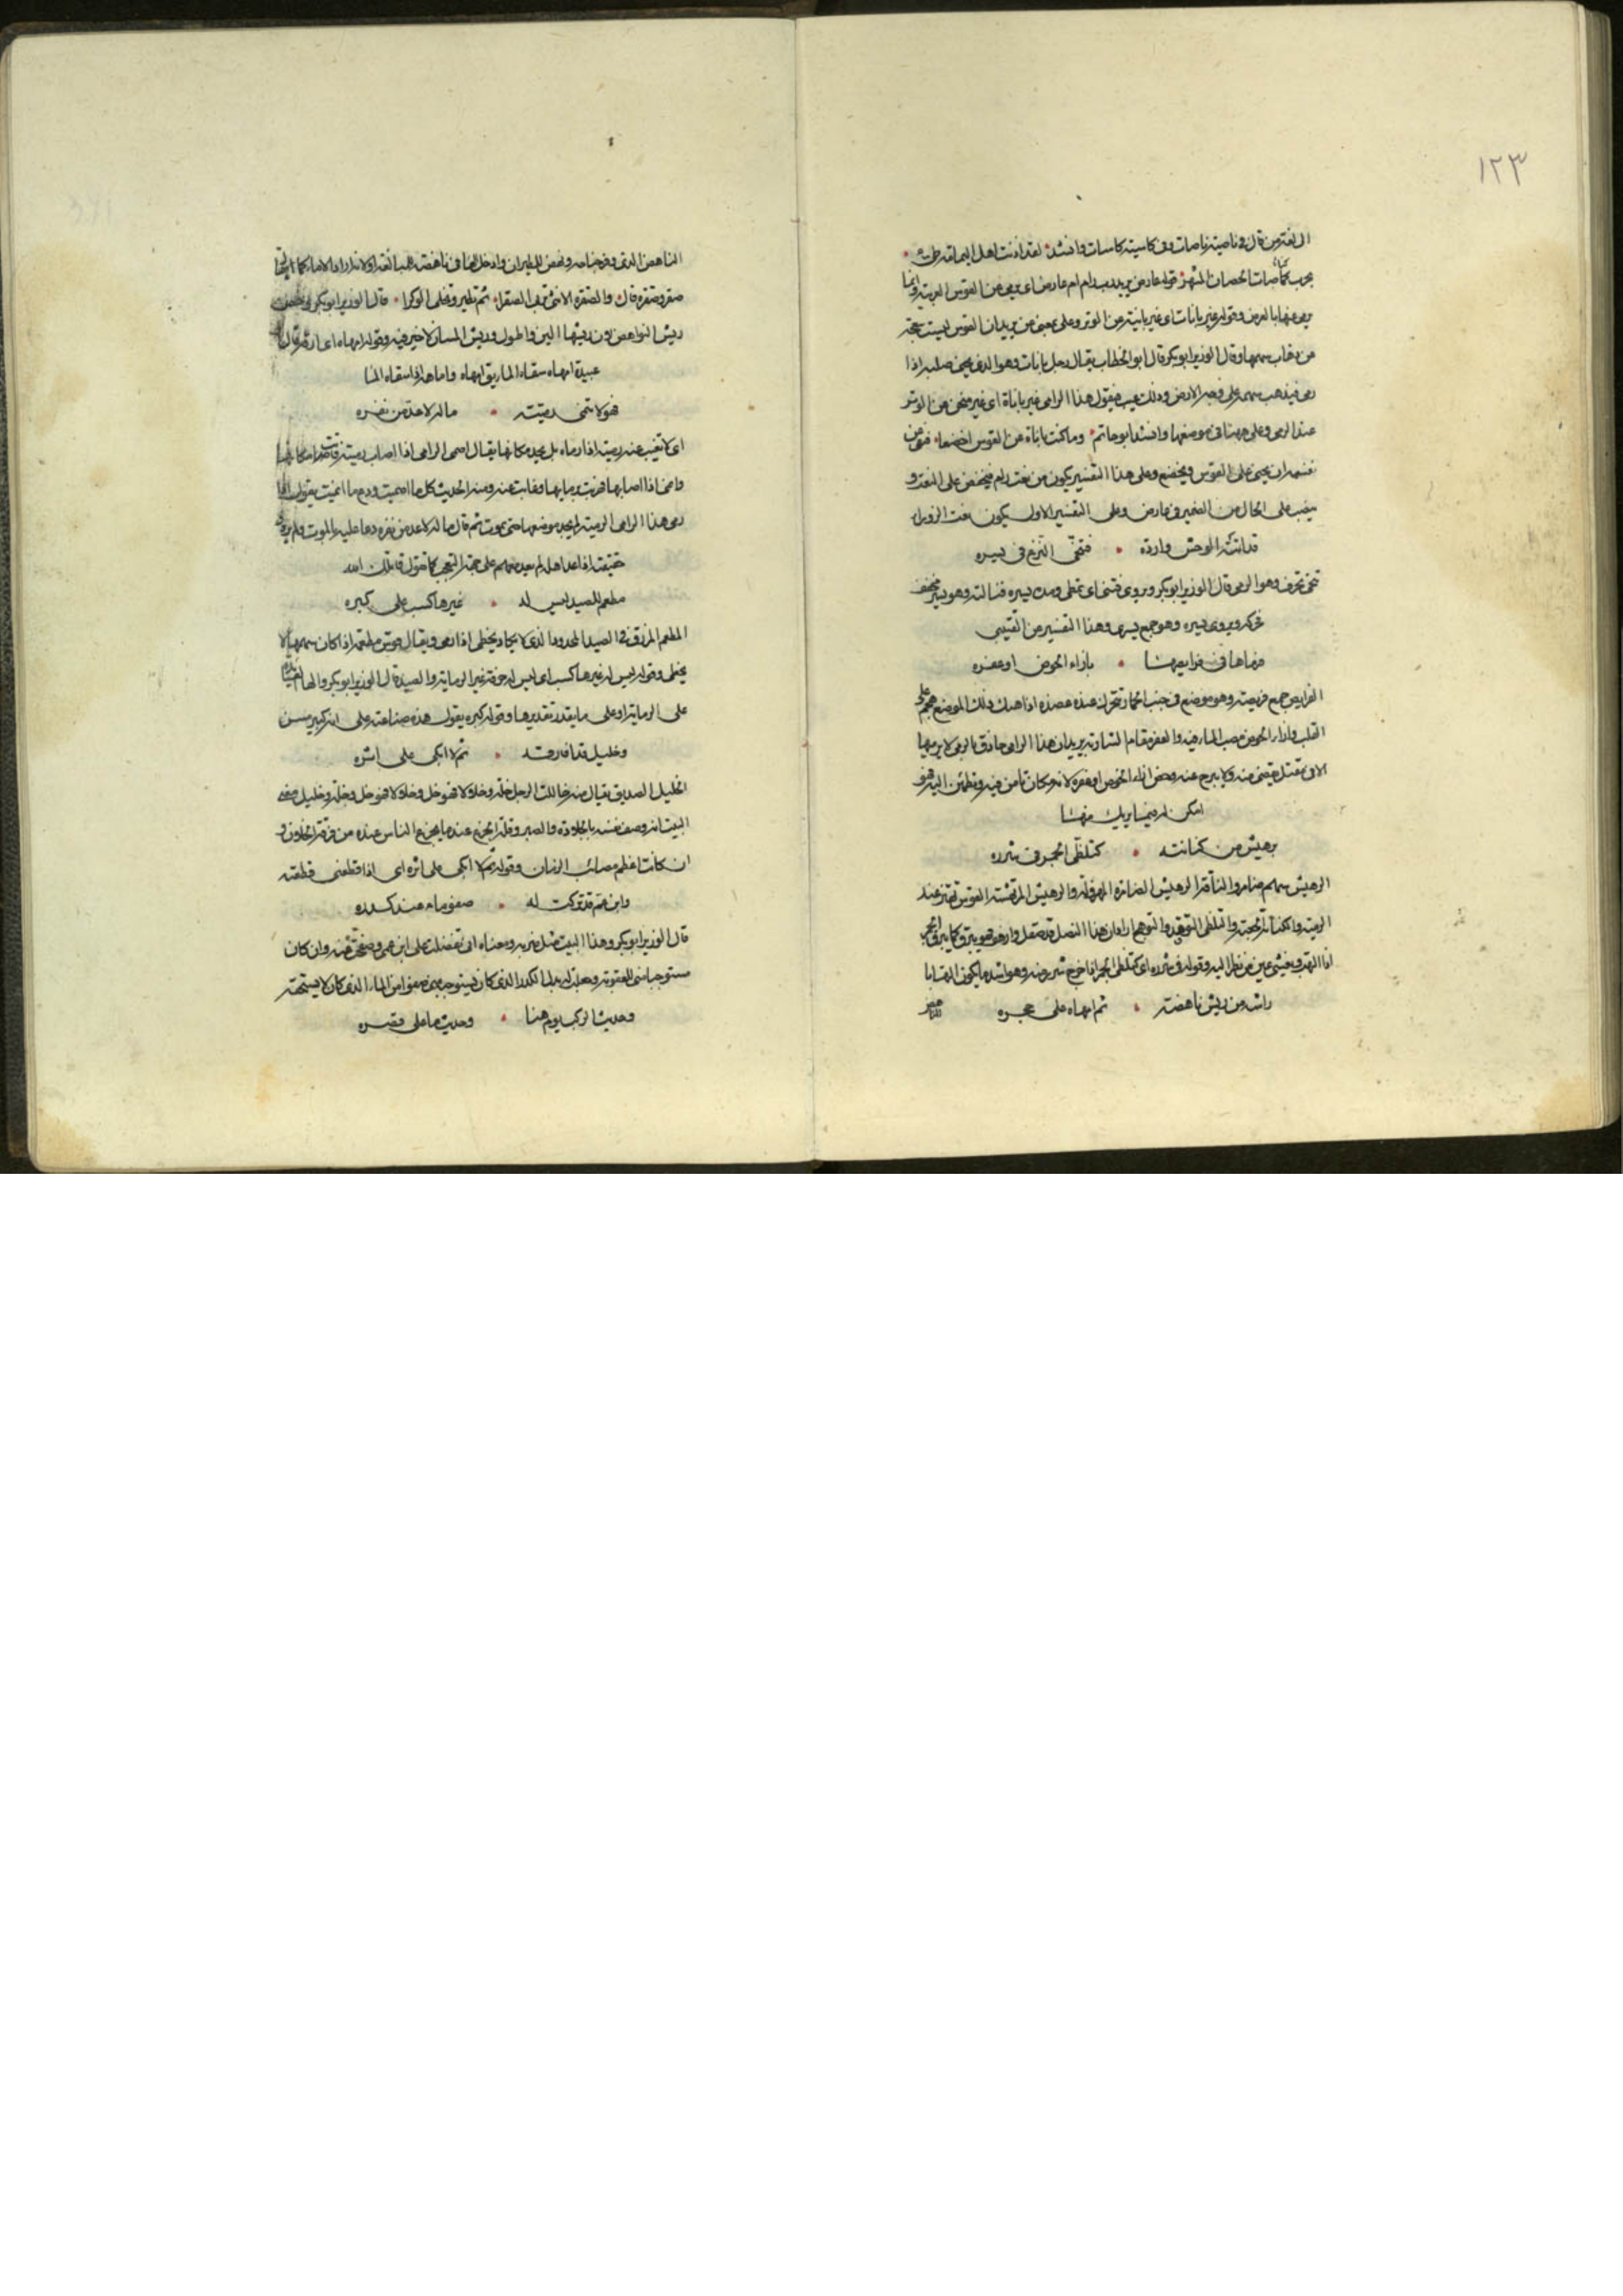 ١٢٣
اللغة من قال في ناصية ناصات وفي كاسية كاسات وانشد لقد اذنت اهل اليمامة طي
بحرب كناصات الحصان المشهر قوله عارض يريد رب رام عارض اي يرمي عن القوس العربية وانما
يرمي عنها بالعرض وقوله غير باناة اي غير بانية عن الوتر وعلى بمعنى عن يريد ان القوس ليست
من سهمها وقال الوزير ابو بكر قال ابو الخطاب يقال رجل باناة وهو الذي يحني صلبه اذا
رمى فيذهب سهمه على وجه الارض وذلك عيب فيقول هذا الرامي غير باناة اي غير منحن عن الوتر
عند الرمي وعلى ههنا في موضعها وانشد ابو حاتم وما كنت باناة عن القوس اخضعا فنفى عن
نفسه ان يحنى على القوس ويخضع وعلى هذا التفسير يكون من نعت رام فيخفض على النعت و
ينصب على الحال من الضمير في عارض وعلى التفسير الاول يكون نعت الزوراء
قد اتته الوحش واردة فتنحى النزع في يسره
تنحى تحرف وهو الرمي قال الوزير ابو بكر ويروى فتمتى اي تمطى ومد يسره قبالته وهو يسر مخفف
فحرك ويروى يسره وهو جمع يسرى وهذا التفسير عن القتيبي
فرماها في فرايصها بازاء الحوض او عقره
الفرايص جمع فريصة وهو موضع في جنب الحمار تتحرك عنده عضده اذا هدك ذلك الموضع هجم على
القلب وازاء الحوض مصب الماء فيه والعقر مقام الشاربة يريد ان هذا الرامي حاذق بالرمي لا يرميها
الا في مقتل يقضي منه ولا يبرح عنه وخص ازاء الحوض او عقره لانه مكان تامن فيه وتطمئن اليه فهو
امكن له فيما يريد منها
برهيش من كنانته كتلظي الجمر في شرره
الرهيش سهم ضامر والناقة الرهيش الضامرة المهزولة والرهيش المرتهشة القوس تهتز عند
الرمية والكنانة الجعبة والتلظي التوقد والتوهج اراد ان هذا النصل قد صقل وارهف فهو يبرق كما يبرق الجمر
اذا التهب ويغشي عين من نظر اليه وقوله في شرره اي كتلظي الجمر اذا خرج شرره منه وهو اشد ما يكون التهابا
راشه من ريش ناهضة ثم امهاه على حجره
الناهض الذي وفر جناحه ونهض للطيران وادخل الهاء في ناهضة للمبالغة
صقر وصقرة قال والصقرة الانثى تبيض الصقرا ثم تطير وتخلي الوكرا قال الوزير ابو بكر وخص
ريش النواهض لان ريشها الين واطول وريش المسان لا خير فيه وقوله امهاه اي ارقه وقال ابو
عبيدة امهاه سقاه الماء يقال امهاه واماهه اذا سقاه الماء
فهو لا تنمي رميته ماله لا عد من نفره
اي لا تغيب عنه رميته اذا رماه بل يجد مكانها يقال اصمى الرامي اذا اصاب رميته فماتت مكانها
وانمى اذا اصابها فمرت برمايها وغابت عنه ومنه الحديث كل ما اصميت ودع ما انميت يقول اذا
رمى هذا الرامي الرمية لم يجد موضعها حتى تموت ثم قال ماله لا عد من نفره دعا عليه بالموت ولم يرد
حقيقته اذا عد اهله لم يعد معهم على جهة التعجب كما تقول قاتلك الله
مطعم للصيد ليس له غيرها كسب على كبره
المطعم المرزوق في الصيد المحدود الذي لا يكاد يخطي اذا رمى ويقال قوس مطعمة اذا كان سهمها لا
يخطي وقوله ليس له غيرها كسب اي ليس له حرفة غير الرماية والصيد قال الوزير ابو بكر والهاء
على الرماية او على ما يقدر تقديرها وقوله كبره يقول هذه صناعته على انه كبير مسن
وخليل قد افارقه ثم لا ابكي على اثره
الخليل الصديق يقال منه خاللت الرجل خلة وخلالا فهو خل وخلة وخليل معنى
البيت انه وصف نفسه بالجلادة والصبر وقلة الجزع عند ما يجزع الناس عنده من فرقة الاخلاء و
ان كانت اعظم مصائب الزمان وقوله ثم لا ابكي على اثره اي اذا قطعني قطعته
وابن عم قد تركت له صفو ماء عند كدره
قال الوزير ابو بكر وهذا البيت مثل ضربه ومعناه اني تفضلت على ابن عمي وصفحت عنه وان كان
مستوجبا مني للعقوبة وجعلت له بدل الكدر الذي كان يستوجب مني صفوا من الماء الذي كان لا يستحقه
وحديث الركب يوم هنا وحديث ما على قصره